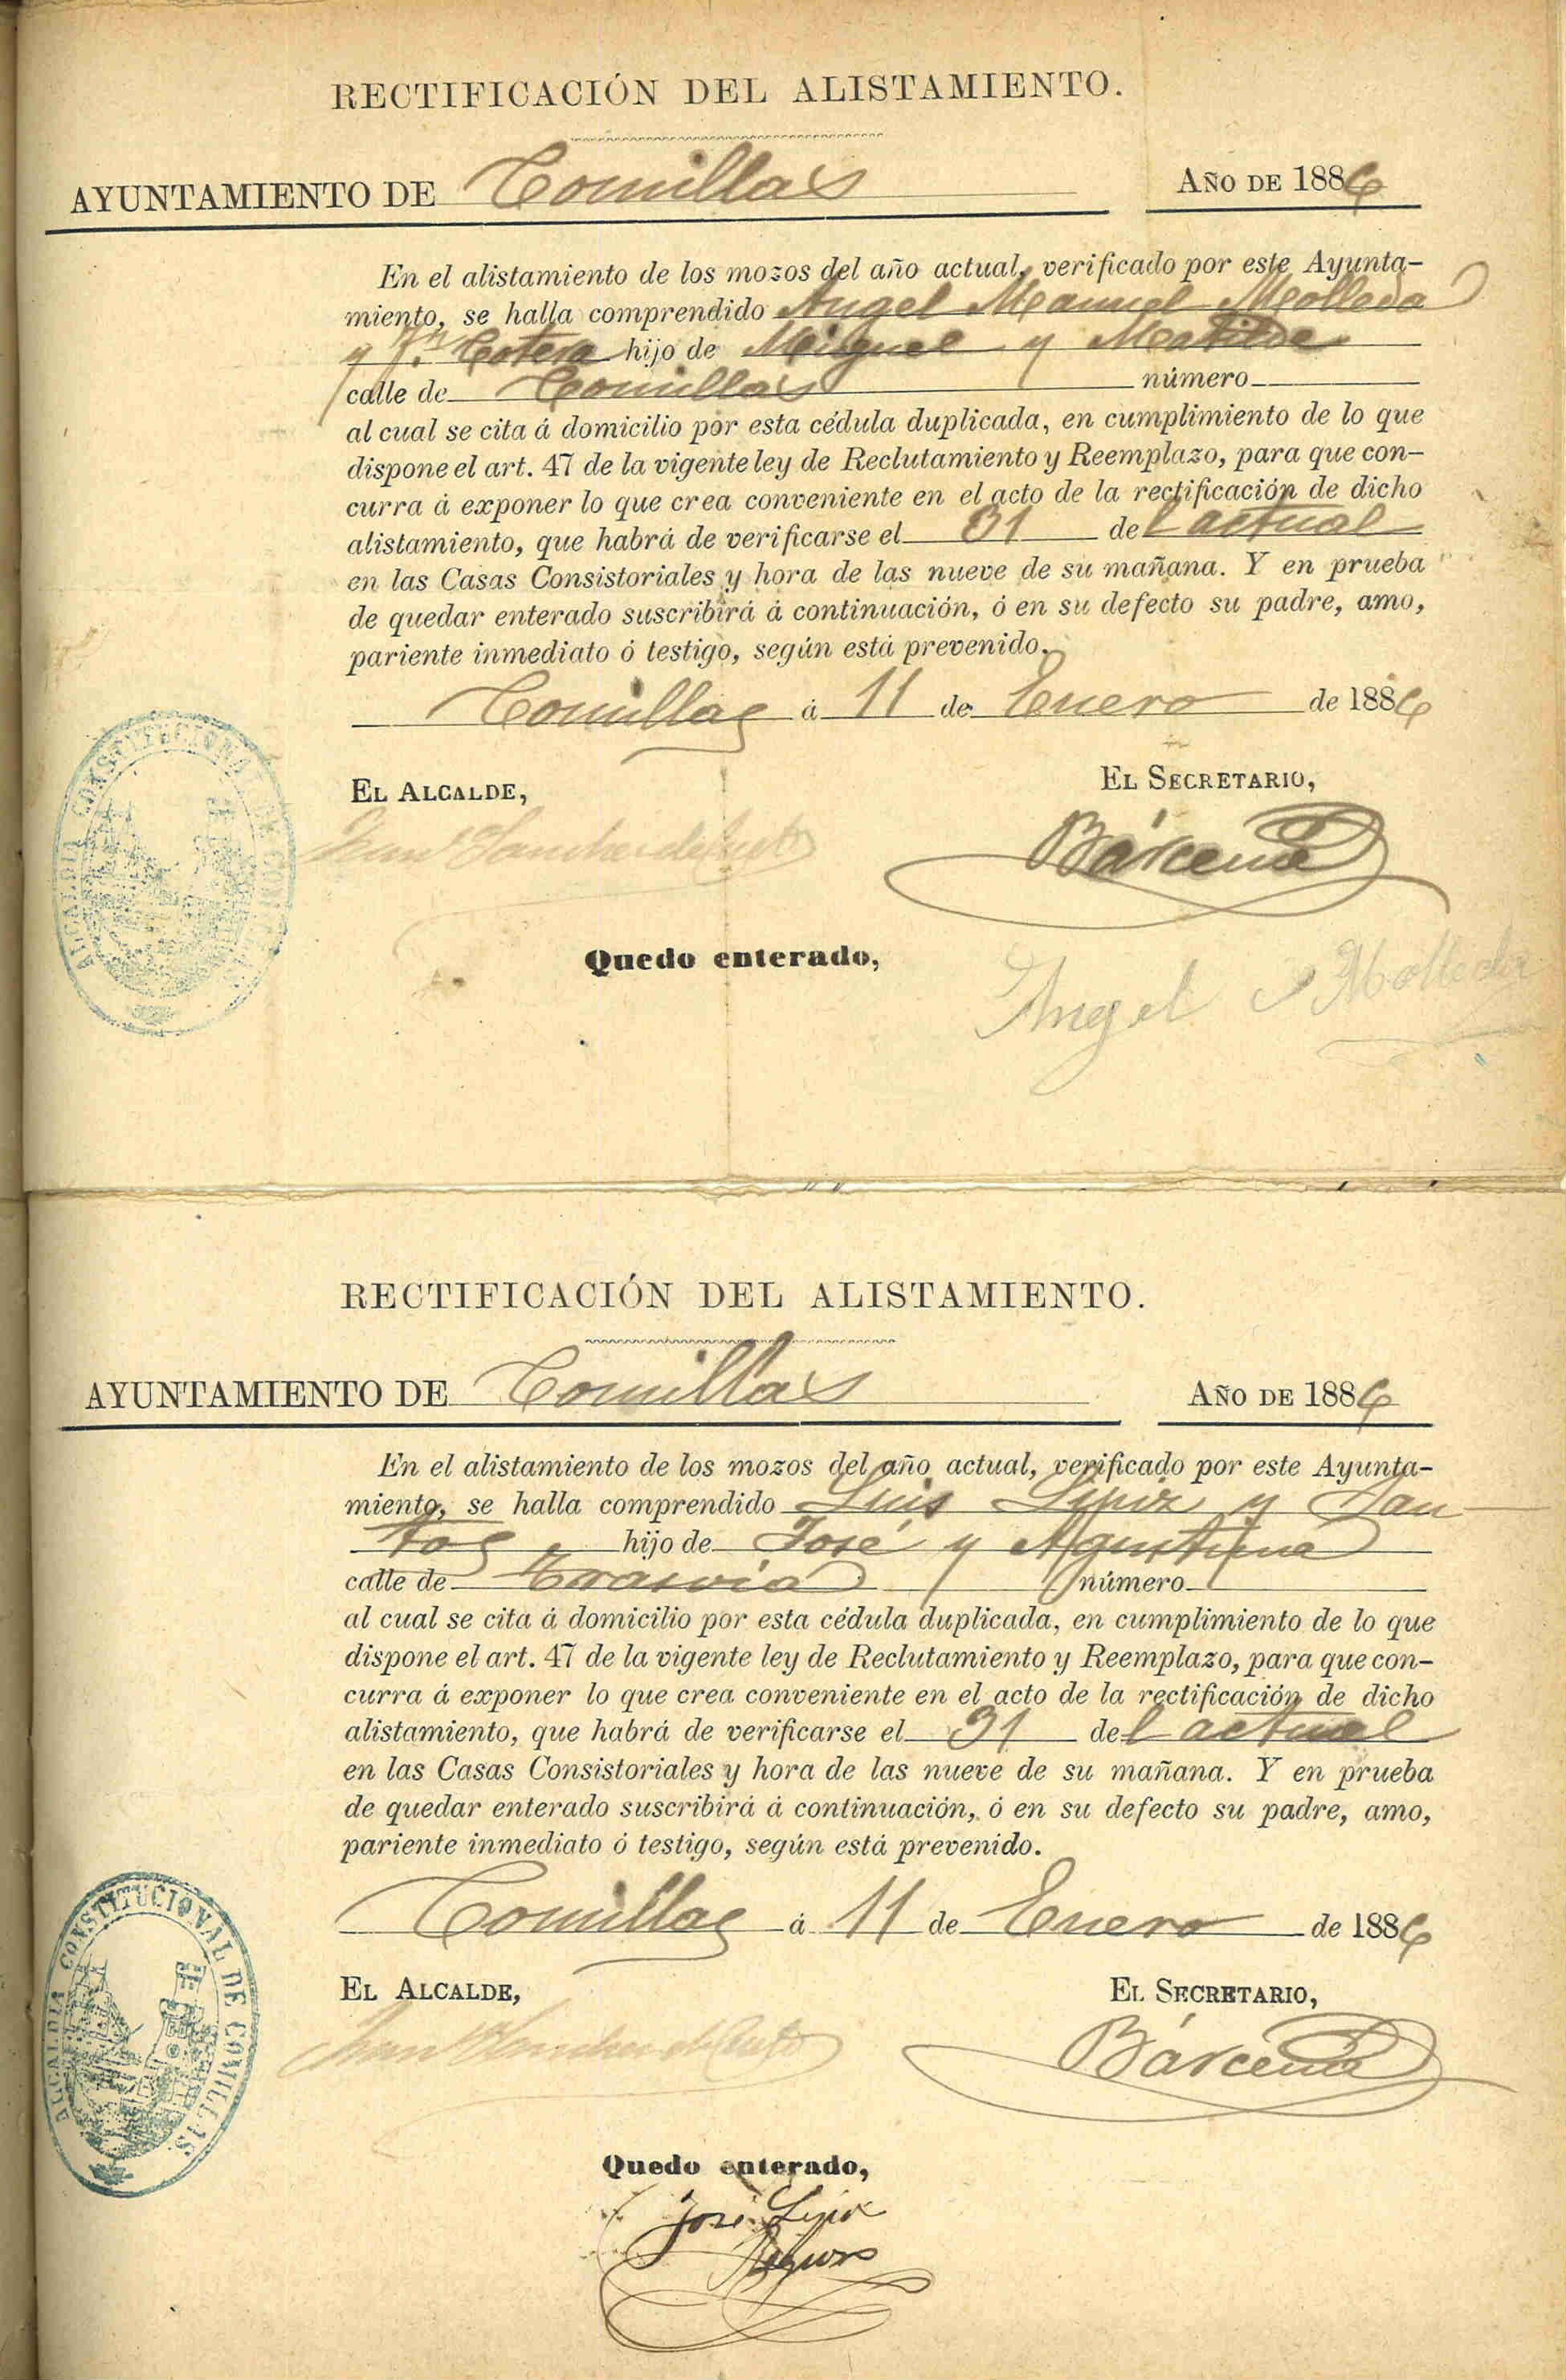 RECTIFICACIÓN DEL ALISTAMIENTO.
AYUNTAMIENTO DE Comillas AÑO DE 1886
En el alistamiento de los mozos del año actual, verificado por este Ayunta-
miento, se halla comprendido Angel Manuel Molleda
y Cotera hijo de Miguel y Matilde
calle de Comillas número
al cual se cita á domicilio por esta cédula duplicada, en cumplimiento de lo que
dispone el art. 47 de la vigente ley de Reclutamiento y Reemplazo, para que con-
curra á exponer lo que crea conveniente en el acto de la rectificación de dicho
alistamiento, que habrá de verificarse el 31 del actual
en las Casas Consistoriales y hora de las nueve de su mañana. Y en prueba
de quedar enterado suscribirá á continuación, ó en su defecto su padre, amo,
pariente inmediato ó testigo, según está prevenido.
Comillas á 11 de Enero de 1886
EL ALCALDE, EL SECRETARIO,
Bárcena
ALCALDIA CONSTITUCIONAL DE COMILLAS
Quedo enterado,
Angel Molleda
RECTIFICACIÓN DEL ALISTAMIENTO.
AYUNTAMIENTO DE Comillas AÑO DE 1886
En el alistamiento de los mozos del año actual, verificado por este Ayunta-
miento, se halla comprendido Luis y San
tos hijo de José y Agustina
calle de Trasvia número
al cual se cita á domicilio por esta cédula duplicada, en cumplimiento de lo que
dispone el art. 47 de la vigente ley de Reclutamiento y Reemplazo, para que con-
curra á exponer lo que crea conveniente en el acto de la rectificación de dicho
alistamiento, que habrá de verificarse el 31 del actual
en las Casas Consistoriales y hora de las nueve de su mañana. Y en prueba
de quedar enterado suscribirá á continuación, ó en su defecto su padre, amo,
pariente inmediato ó testigo, según está prevenido.
Comillas á 11 de Enero de 1886
EL ALCALDE, EL SECRETARIO,
Bárcena
ALCALDIA CONSTITUCIONAL DE COMILLAS
Quedo enterado,
José